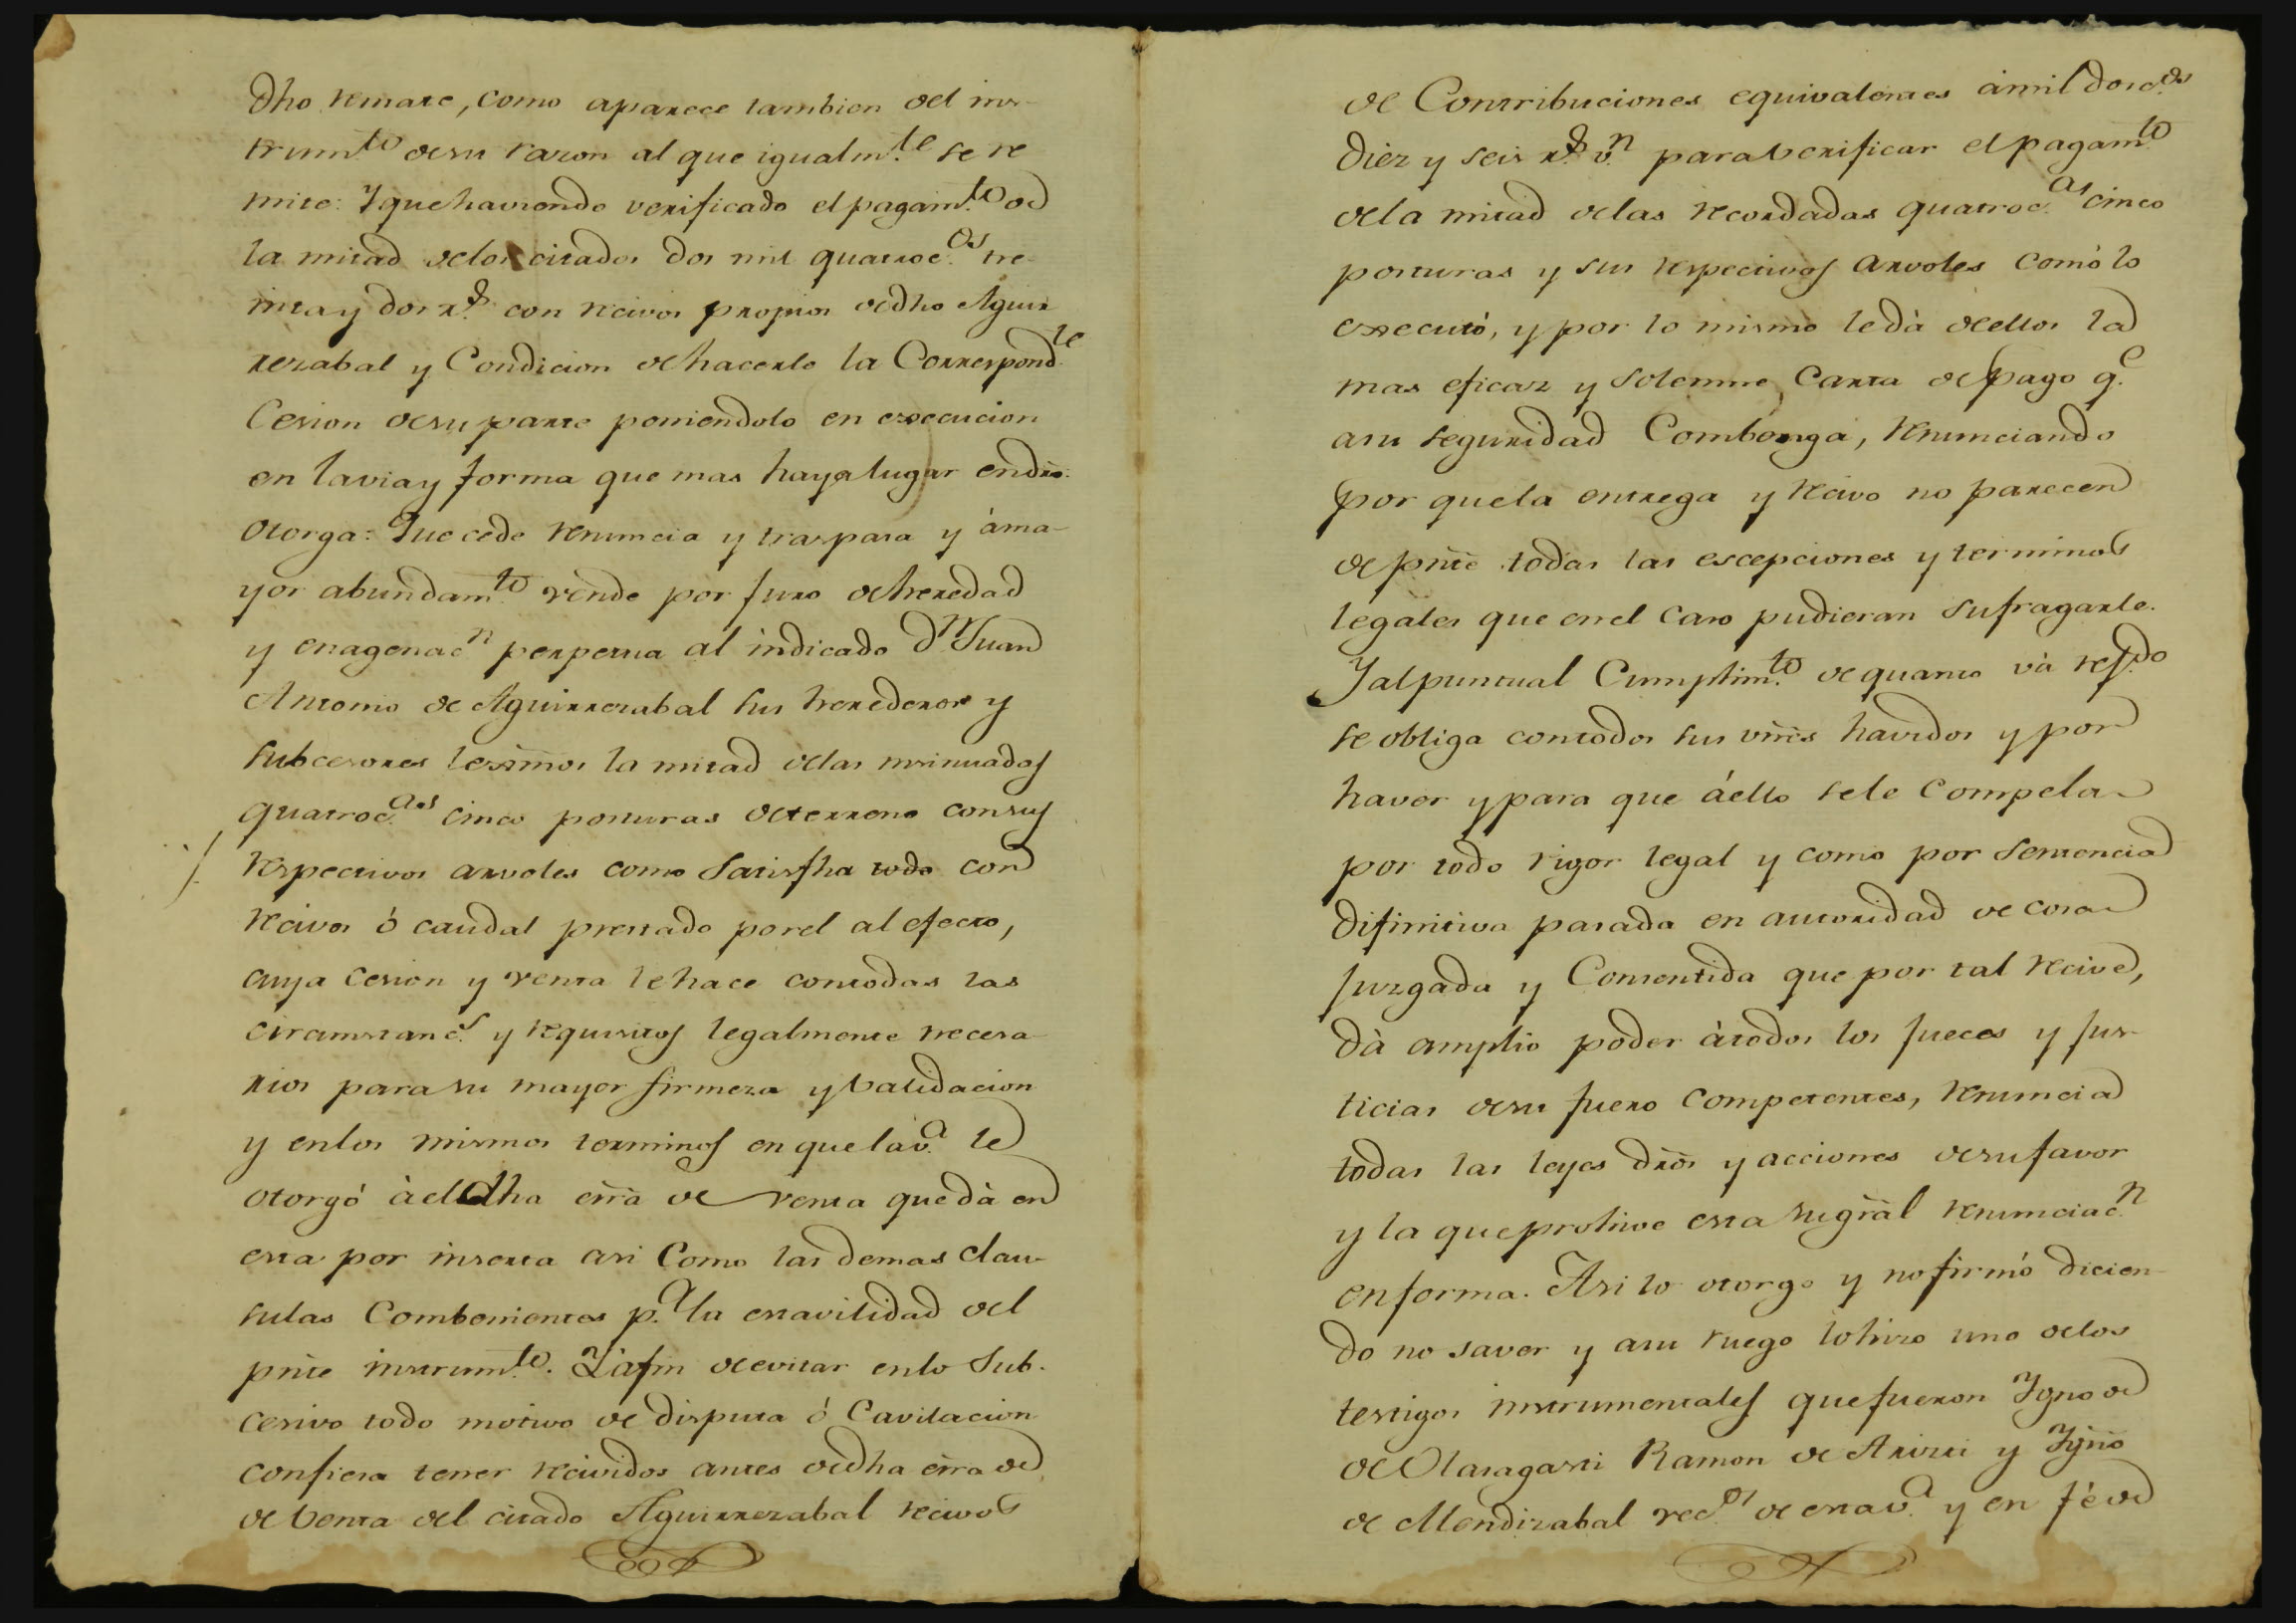 dho remate, como aparece tambien del ins-
trumto de su razon al que igualmte se re
mite: Y que haviendo verificado el pagamto de
la mitad de los citados dos mil quatrocos tre-
inta y dos rs con recivos propios de dho Aguir
rezabal y Condicion de hacerle la Correspondte
Cesion de su parte poniendolo en execucion
en la via y forma que mas haya lugar en dro.
Otorga: Que cede renuncia y traspasa y à ma-
yor abundamto vende por juro de heredad
y enagenacn perpetua al indicado Dn Juan
Antonio de Aguirrezabal sus herederos y
subcesores lexmos la mitad de las insinuadas
quatrocas cinco posturas de terreno con sus
respectivos arvoles como satisfha todo con
recivos ó caudal prestado por el al efecto,
cuya Cesion y venta le hace con todas las
circunstancs y requisitos legalmente necesa-
rios para su mayor firmeza y validacion
y en los mismos terminos en que la va le
otorgó à el dha esrra de venta que dà en
esta por inserta asi Como las demas clau-
sulas Combenientes pa la estavilidad del
pnte instrumto. Y à fin de evitar en lo Sub-
cesivo todo motivo de disputa ó Cavilacion
confiesa tener recividos antes de dha esrra de
de Venta del citado Aguirrezabal recivos
de Contribuciones equivalentes à mil doscos
diez y seis rs vn para verificar el pagamto
de la mitad de las recordadas quatrocas cinco
posturas y sus respectivos arvoles comó lo
executó, y por lo mismo le dà de ellos la
mas eficaz y solemne Carta de pago qe
a su seguridad Combenga, renunciando
por que la entrega y recivo no parecen
de pnte todas las escepciones y terminos
legales que en el caso pudieran sufragarle.
Y al puntual Cumplimto de quanto và refdo
se obliga con todos sus vnes havidos y por
haver y para que á ello se le Compela
por todo rigor legal y como por Sentencia
difinitiva pasada en autoridad de cosa
juzgada y Consentida que por tal recive,
dà amplio poder à todos los jueces y jus-
ticias de su fuero Competentes, renuncia
todas las leyes dros y acciones de su favor
y la que prohive esta su gral renunciacn
en forma. Asi lo otorgo y no firmó dicien-
do no saver y a su ruego lo hizo uno de los
testigos instrumentales que fueron Ygno de
de Olasagasti Ramon de Arizti y Ygno
de Mendizabal vecos de esta va y en fé de